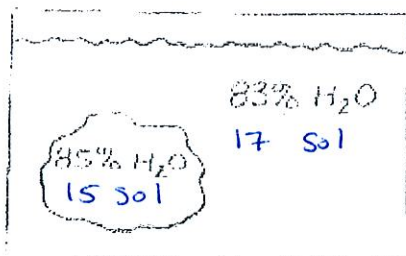 83% H₂O
17 Sol
85% H₂O
15 Sol